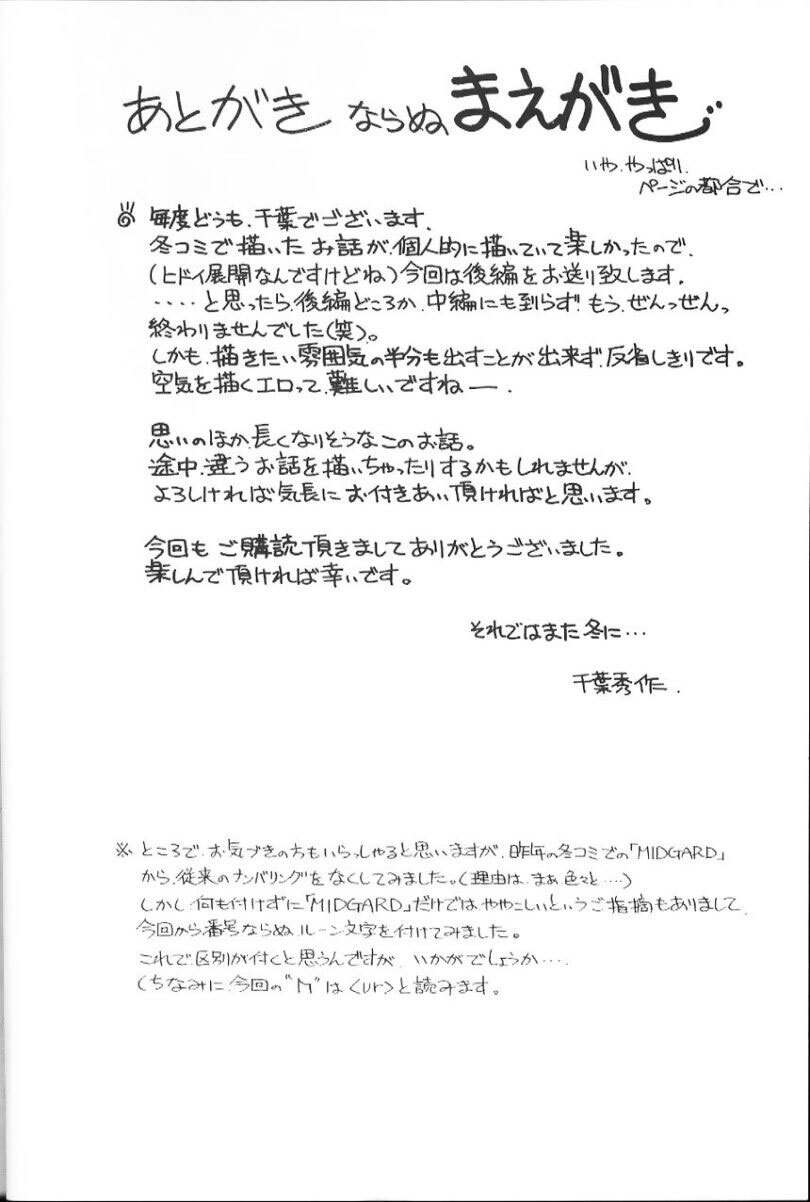 あとがき ならぬ、まえがき
いや、やっぱり、
ページの都合で…
毎度どうも、千葉でございます。
冬コミで描いたお話が、個人的に描いていて楽しかったので、
(ヒドイ展開なんですけどね)今回は後編をお送り致します。
‥‥と思ったら、後編どころか、中編にも到らず!もう、ぜんっぜんっ
終わりませんでした(笑)。
しかも、描きたい雰囲気の半分も出すことが出来ず、反省しきりです。
空気を描くエロって、難しいですねー.
思いのほか、長くなりそうなこのお話。
途中、違うお話を描いちゃったりするかもしれませんが、
よろしければ気長にお付きあい頂ければと思います。
今回もご購読頂きましてありがとうございました。
楽しんで頂ければ幸いです。
それではまた冬に…
千葉秀作.
※ところで、お気づきの方もいらっしゃると思いますが、昨年の冬コミでの「MIDGARD」
から、従来のナンバリングをなくしてみました。(理由は、まあ色々と‥‥)
しかし何も付けずに「MIDGARD」だけではややこしいというご指摘もありまして、
今回から番号ならぬ、ルーン文字を付けてみました。
これで区別が付くと思うんですが、いかがでしょうか‥‥
(ちなみに、今回の"ᚢ"は<ur>と読みます。